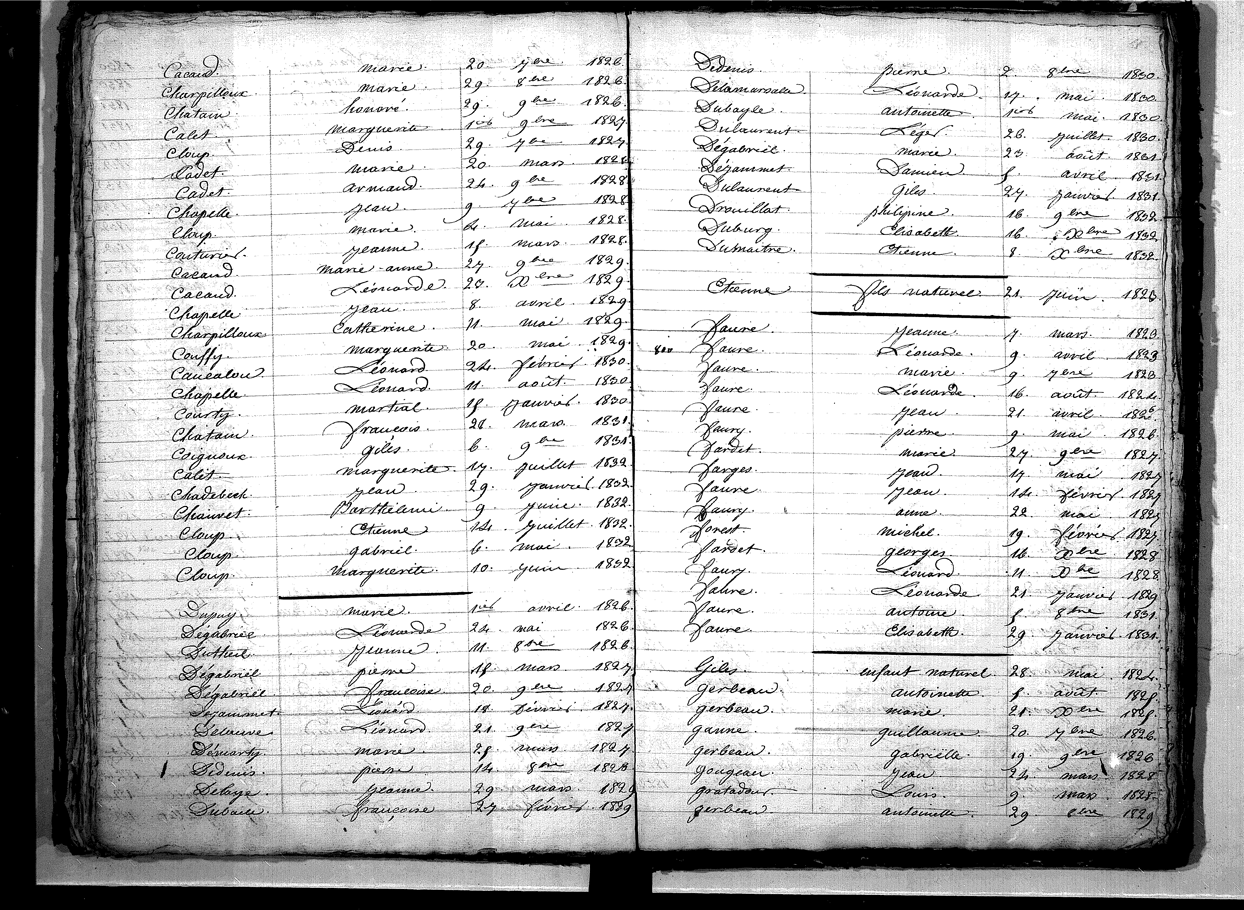 Cacaud. marie 20 7bre 1826.
Charpilloux marie. 29 8bre 1826.
Chatain honoré. 29. 9bre 1826.
Calet marguerite 1ier 9bre 1827
Cloup. Denis 29. 7bre 1827.
Cadet marie. 20. mars 1828
Cadet. armand. 24. 9bre 1828
Chapelle. jean 9. 7bre 1828
Cloup marie. 4 mai 1828.
Couturier. jeanne. 15 mars. 1828.
Cacaud marie anne. 27. 9bre 1829.
Cacaud. Léonarde. 23. Xbre 1829
Chapelle jean. 8. avril. 1829
Charpilloux Catherine. 11. mai 1829.
Couffy. marguerite 20. mai 1829.
Caucalou. Léonard 24. février 1830.
Chapelle Léonard 11. août. 1830
Courty. martial 15 janvier. 1830
Chatain. françois. 28. mars. 1831.
Coignoux gilés. 6. 9bre 1831
Calet. marguerite. 17. juillet 1832
Chadebech. jean. 29. janvier. 1832.
Chauvet Barthélemi 9 juin. 1832.
Cloup. Etienne 14. juillet. 1832.
Cloup. gabriel 6. mai. 1832
Cloup. marguerite. 10. juin. 1832
Dupuy marie. 1ier avril. 1826.
Dégabriel Léonarde 24. mai 1826.
Dutheil. jeanne. 11. 8bre 1826.
Dégabriel pierre 15. mars. 1827
Dégabriel françoise 20. 9bre 1827
Dejammet Léonard 18. février 1827.
Delauve Léonard. 21. 9bre 1827
Démarty marie. 25. mars. 1827
Dedenis. pierre 14. 8bre 1828
Delage. jeanne 29. mars. 1829
françoise 27. février 1829
Dedenis. pierre. 2. 8bre 1830
Léonarde. 17. mai 1830
Dubayle. antoinette 1ier mai 1830.
Dulaurent Leger. 26. juillet. 1830.
Dégabriel. marie. 23. août. 1831
Déjammet. Damien 5 avril. 1831.
Dulaurent giles 27 janvier 1831.
Drouillat. philipine. 16. 9bre 1832.
Duburg. Elisabeth 16. Xbre 1832
Dumaitre. Etienne 8. Xbre 1832.
Etienne fils naturel 21. juin. 1823
faure. jeanne. 7. mars. 1823.
faure. Léonarde. 9. avril 1823
faure. marie. 9. 7bre 1823
faure. Léonarde. 16. août 1824.
faure. jean. 21. avril 1825
faury. pierre. 9. mai 1826.
fardet. marie 27. 9bre 1827.
farges. jean 17. mai 1827
faure jean. 14. février 1827
faury. anne. 22. mai 1827
forest. michel. 19. février. 1827.
fardet. georges. 16. Xbre 1828
faury. Léonard 11. Xbre 1828.
faure. Léonarde 21. janvier 1829
faure. antoine. 5. 8bre 1831.
faure. Elisabeth 29 janvier 1831.
Giles. enfant naturel. 28. mai 1824.
gerbeau. antoinette. 5. août. 1825.
gerbeau. marie. 21. Xbre 1825.
ganne. guillaume 20 7bre 1826.
gerbeau. gabrielle. 19. 9bre 1826
gougeau. jean. 24 mars 1828
gratadour Louis. 9. mars. 1828.
gerbeau antoinette. 29. 8bre 1829